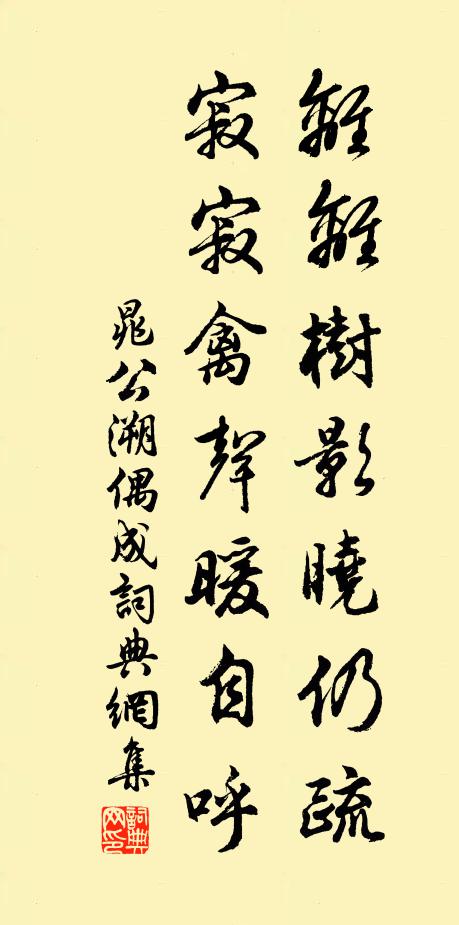 離離樹影曉仍疏
寂寂禽聲暖自呼
晁公溯偶成詞典網集
詞典網印